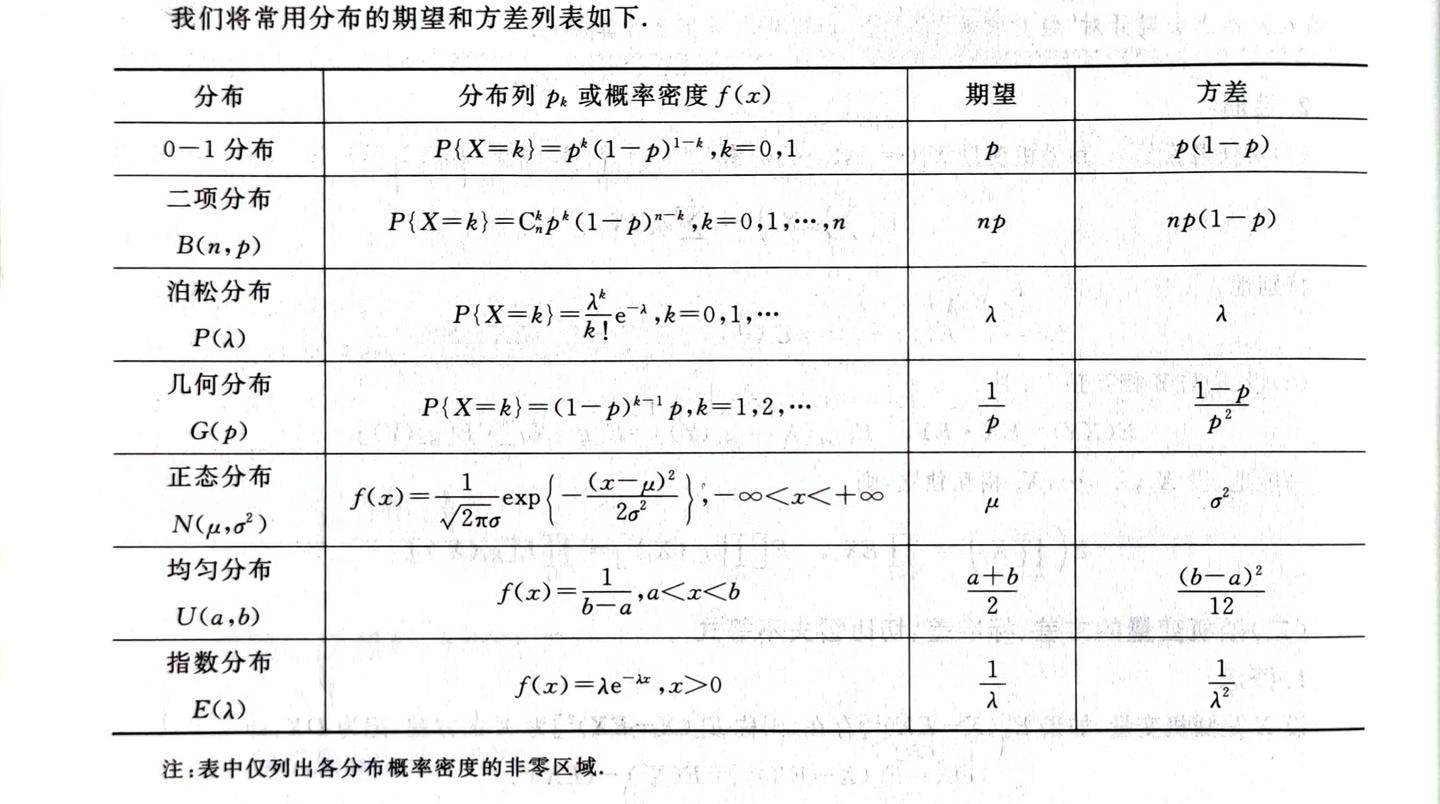 我们将常用分布的期望和方差列表如下.
分布 分布列 pₖ 或概率密度 f(x) 期望 方差
0—1 分布 P{X=k}=pᵏ(1-p)¹⁻ᵏ,k=0,1 p p(1-p)
二项分布
B(n,p) P{X=k}=Cₙᵏpᵏ(1-p)ⁿ⁻ᵏ,k=0,1,⋯,n np np(1-p)
泊松分布
P(λ) P{X=k}=λᵏ/k! e^{-λ},k=0,1,⋯ λ λ
几何分布
G(p) P{X=k}=(1-p)ᵏ⁻¹p,k=1,2,⋯ 1/p (1-p)/p²
正态分布
N(μ,σ²) f(x)=1/(√(2π)σ) exp{-(x-μ)²/(2σ²)},-∞<x<+∞ μ σ²
均匀分布
U(a,b) f(x)=1/(b-a),a<x<b (a+b)/2 (b-a)²/12
指数分布
E(λ) f(x)=λe^{-λx},x>0 1/λ 1/λ²
注:表中仅列出各分布概率密度的非零区域.